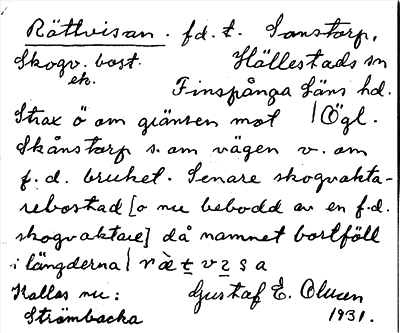 Rättvisan. f.d. t. Sonstorp,
Skogv. bost. Hällestads sn
ek. Finspånga läns hd.
Strax ö om gränsen mot | Ögl.
Skånstorp s. om vägen v. om
f. d. bruket. Senare skogvakta-
rebostad [o nu bebodd av en f.d.
skogvaktare] då namnet bortföll
i längderna | 
Kallas nu: Gustaf E. Olsson
Strömbacka 1931.